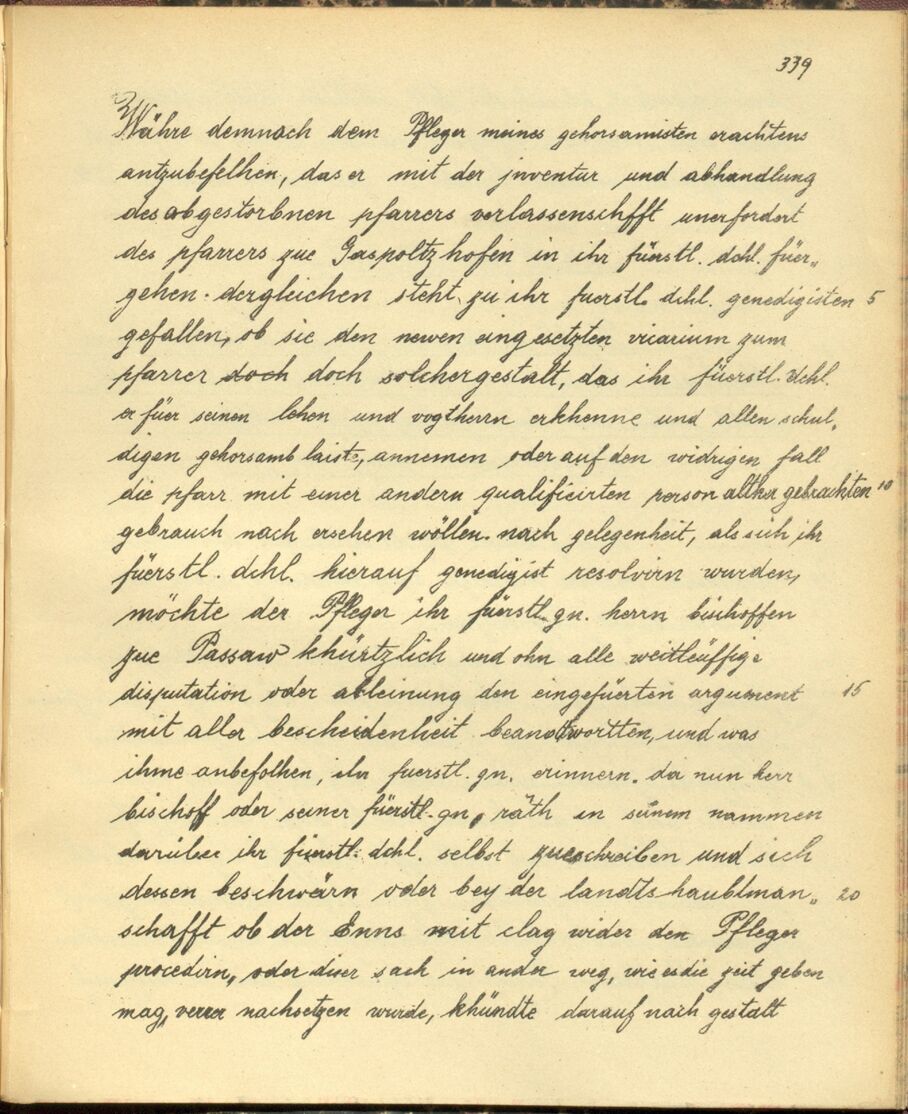 339
Währe demnach dem Pfleger meines gehorsamisten erachtens
antzubefelhen, das er mit der jnventur und abhandlung
des abgestorbnen pfarrers verlassenschifft unerfordert
des pfarrers zue Gaspoltzhofen in ihr fürstl. dchl. füer„
gehen. dergleichen steht zu ihr fuerstl. dchl. genedigisten 5
gefallen, ob sie den newen eingesetzten vicarium zum
pfarrer doch doch solchergestalt, das ihr füerstl. dchl.
er füer seinen lehen und vogtherrn erkhenne und allen schul„
digen gehorsamb laiste, annemen oder auf den widrigen fall
die pfarr mit einer andern qualificirten person alther gebrachten 10
gebrauch nach ersehen wöllen. nach gelegenheit, als sich ihr
füerstl. dchl. hierauf genedigist resolvirn wurden,
möchte der Pfleger ihr füerstl. gn. herrn bischoffen
zue Passaw khürtzlich und ohn alle weitleüffige
disputation oder ableinung den eingefüerten argument 15
mit aller bescheidenheit beantwortten, und was
ihme anbefolhen, ihr fuerstl. gn. erinnern. da nun herr
bischoff oder seiner füerstl. gn. räth in seinem nammen
darüber ihr füerstl. dchl. selbst zueschreiben und sich
dessen beschwärn oder bey der landtshaubtman„ 20
schafft ob der Enns mit clag wider den Pfleger
procedirn, oder diser sach in ander weg, wie es die zeit geben
mag, verrer nachsetzen wurde, khündte darauf nach gestalt